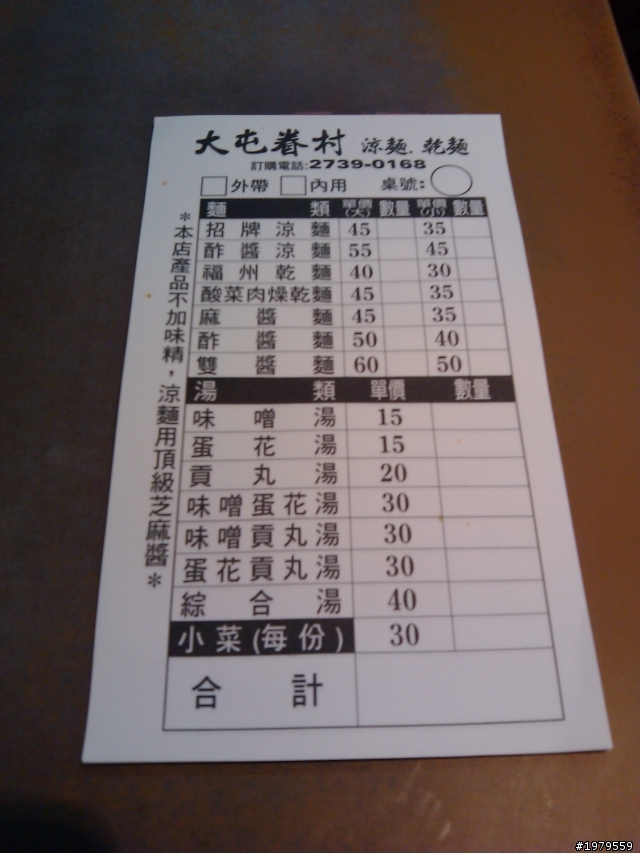 大屯眷村 涼麵.乾麵
訂購電話:2739-0168
外帶 內用 桌號:
麵類 單價(大) 數量 單價(小) 數量
招牌涼麵 45 35
酢醬涼麵 55 45
福州乾麵 40 30
酸菜肉燥乾麵 45 35
麻醬麵 45 35
酢醬麵 50 40
雙醬麵 60 50
湯類 單價 數量
味噌湯 15
蛋花湯 15
貢丸湯 20
味噌蛋花湯 30
味噌貢丸湯 30
蛋花貢丸湯 30
綜合湯 40
小菜(每份) 30
合計
*本店產品不加味精，涼麵用頂級芝麻醬*
#1979559